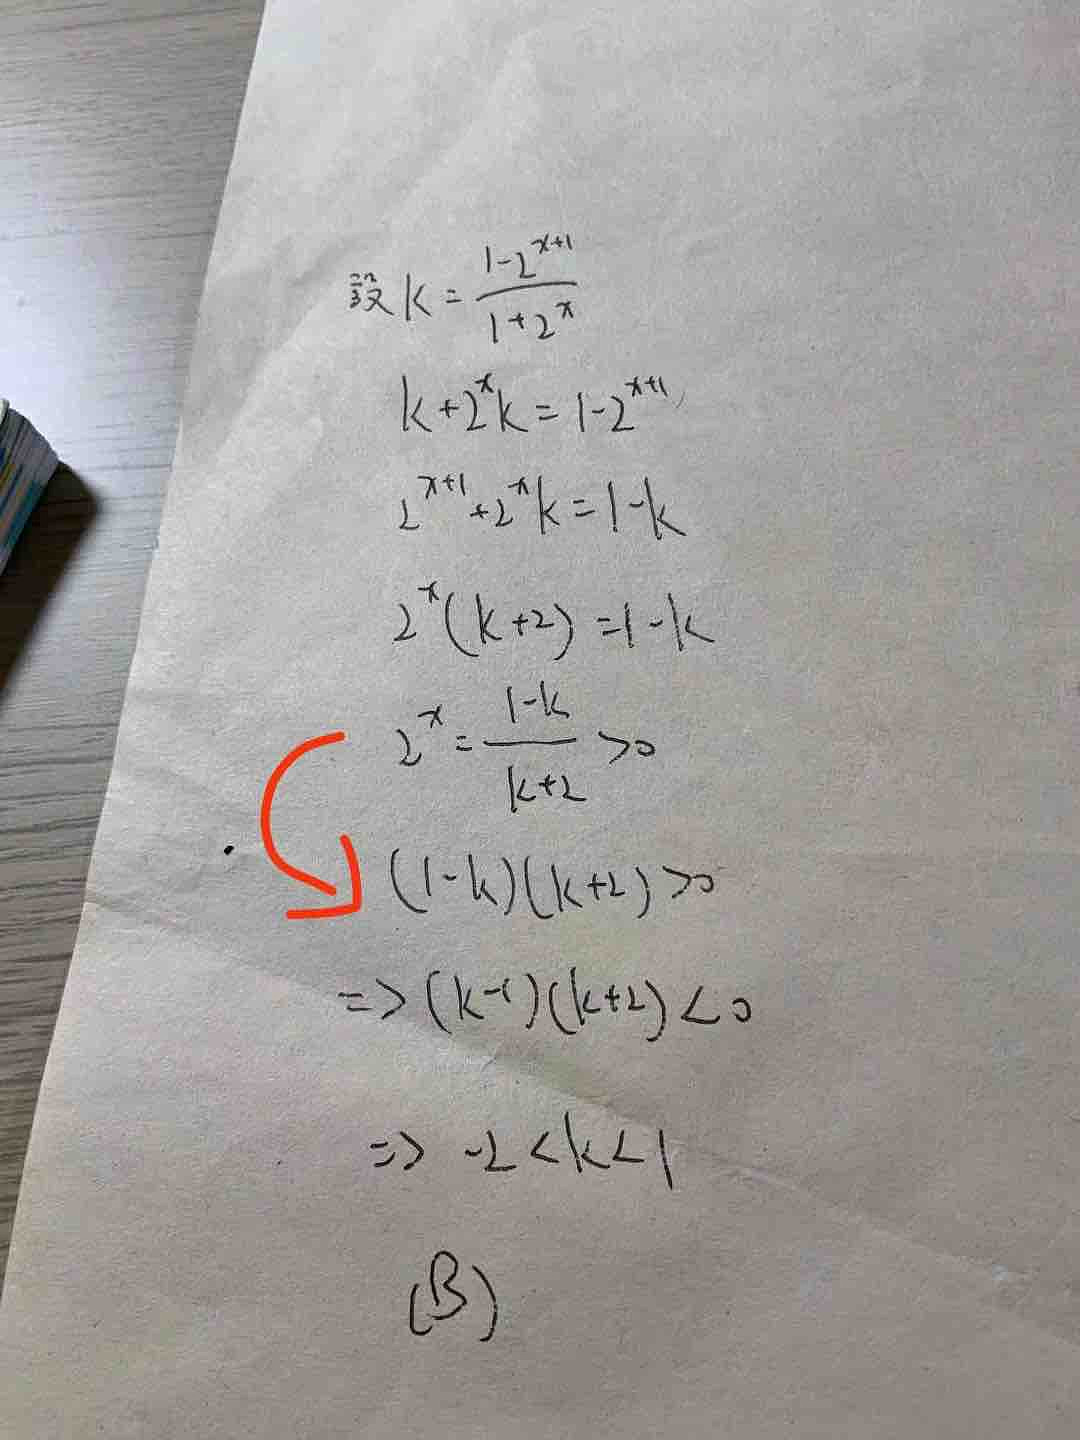 設 k = \frac{1-2^{x+1}}{1+2^x}
k+2^x k = 1-2^{x+1}
2^{x+1}+2^x k = 1-k
2^x(k+2) = 1-k
2^x = \frac{1-k}{k+2} >0
(1-k)(k+2)>0
=> (k-1)(k+2)<0
=> -2<k<1
(B)